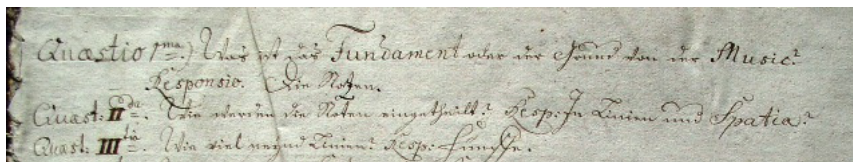 Quæstio 1ma.) Was ist das Fundament oder der Grund von der Music?
Responsio. Die Noten.
Quæst: IIda. Wie werden die Noten eingetheilt? Resp: In Linien und Spatia?
Quæst: IIItia. Wie viel seynd Linien? Resp: Fünffe.